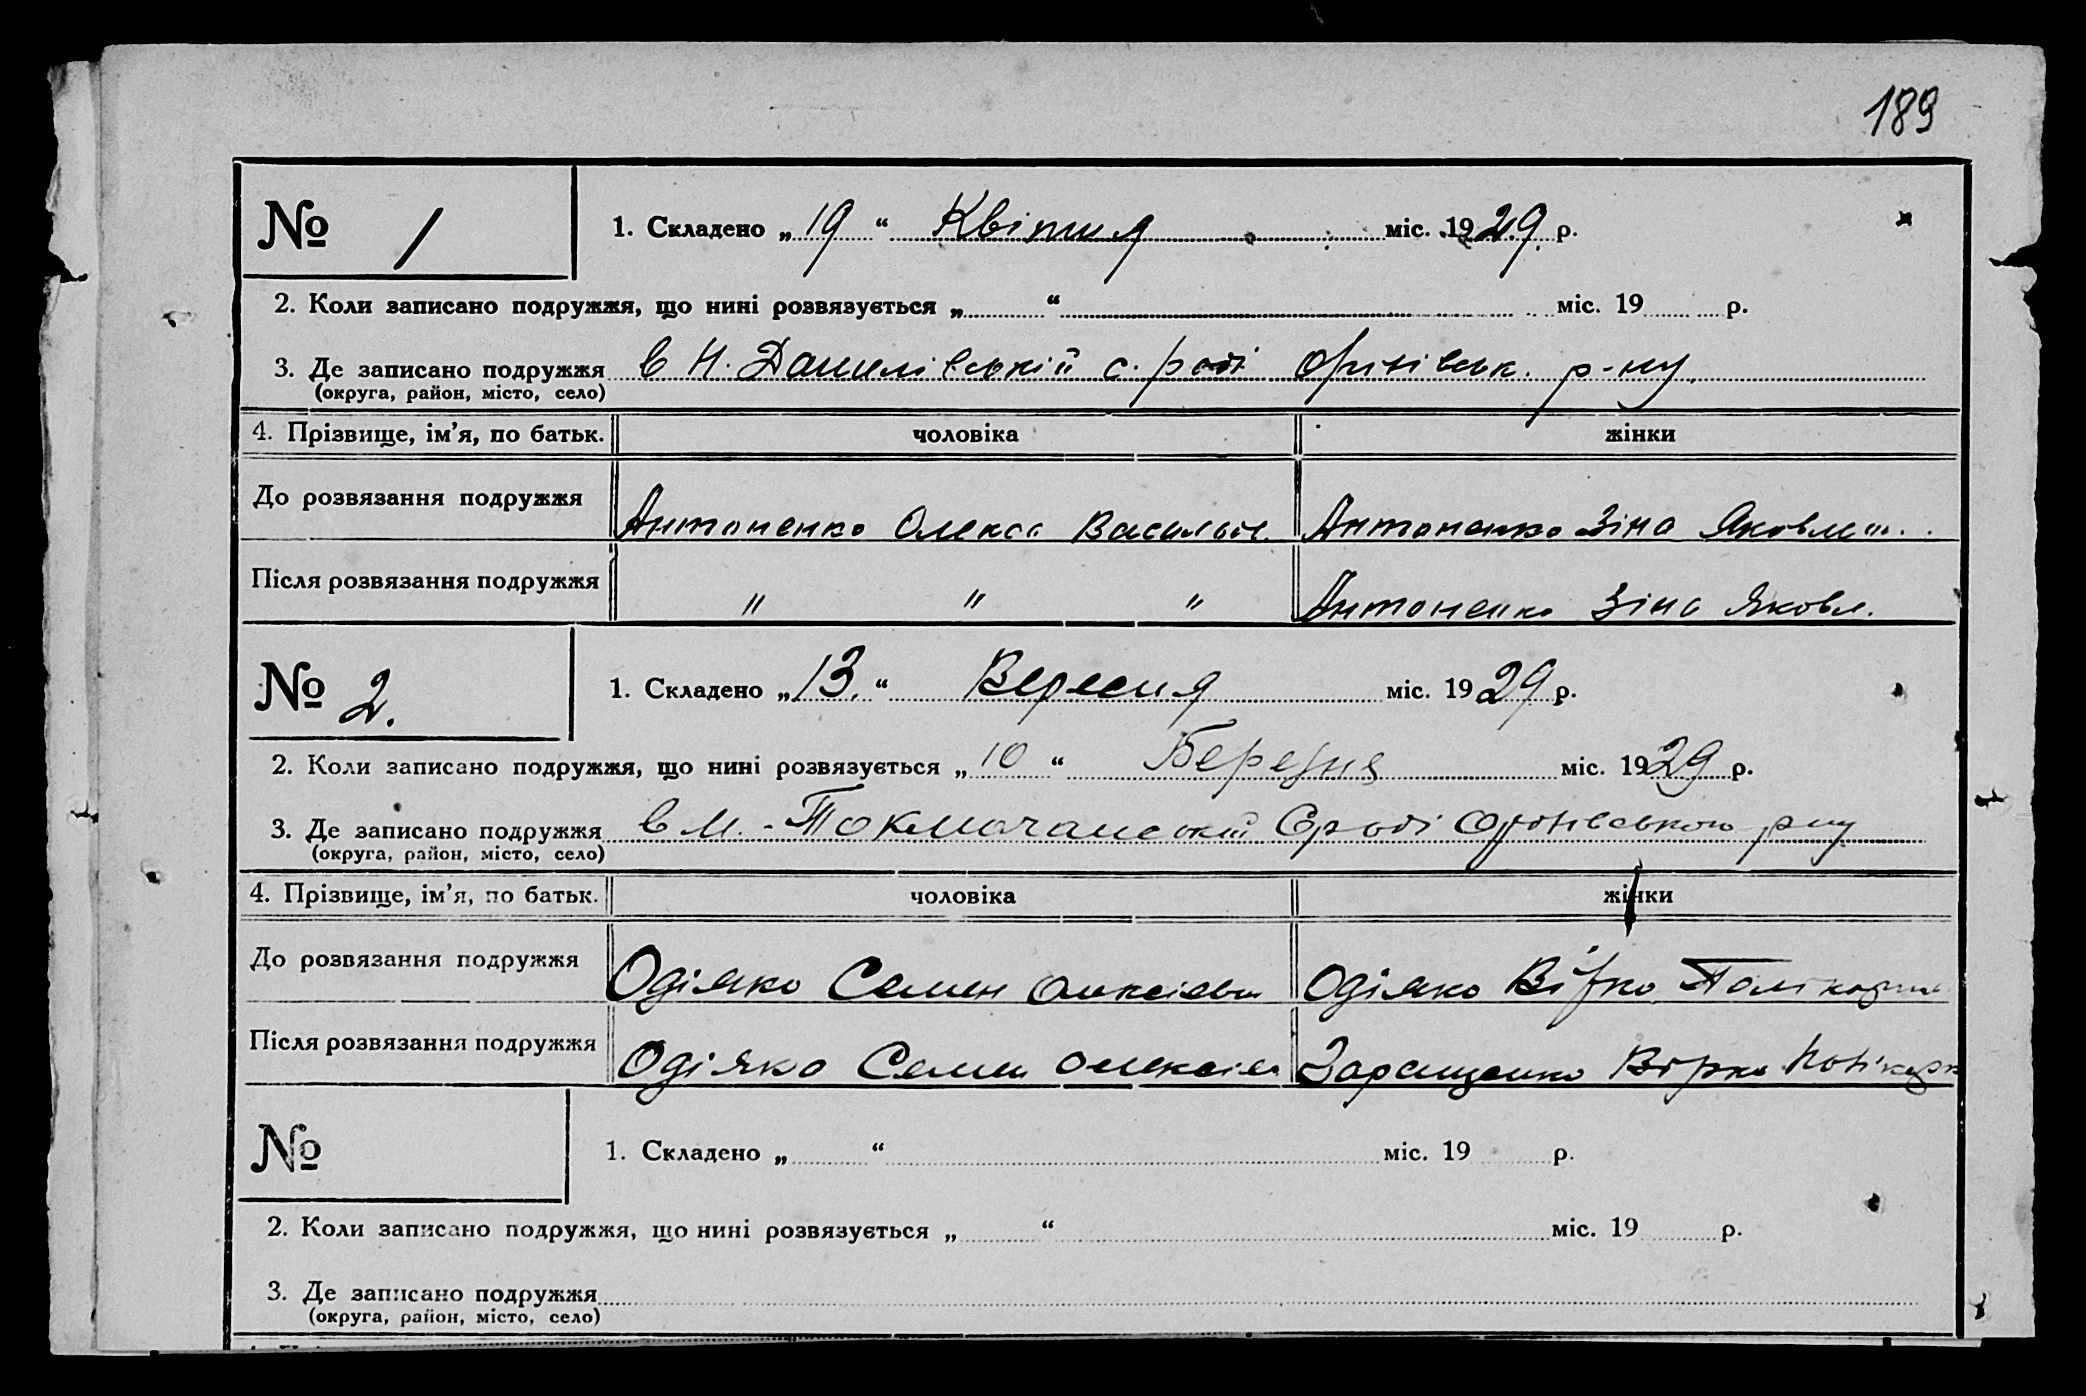 189
№ 1
1. Складено „ 19 “ Квітня міс. 1929 р.
2. Коли записано подружжя, що нині розвязується „ “ міс. 19 р.
3. Де записано подружжя в Н. Данилівській с. раді Оріхівськ. р-ну
(округа, район, місто, село)
4. Прізвище, ім’я, по батьк. чоловіка жінки
До розвязання подружжя Антоненко Олекса Васильов. Антоненко Зіна Яковлев.
Після розвязання подружжя " " " Антоненко Зіна Яковл.
№ 2.
1. Складено „ 13. “ Вересня міс. 1929 р.
2. Коли записано подружжя, що нині розвязується „ 10 “ Березня міс. 1929 р.
3. Де записано подружжя в М.-Токмачанській С/раді Оріхівського р-ну
(округа, район, місто, село)
4. Прізвище, ім’я, по батьк. чоловіка жінки
До розвязання подружжя Одіяко Семен Одіяко Вірка
Після розвязання подружжя Одіяко Семен Вірка
№
1. Складено „ “ міс. 19 р.
2. Коли записано подружжя, що нині розвязується „ “ міс. 19 р.
3. Де записано подружжя
(округа, район, місто, село)